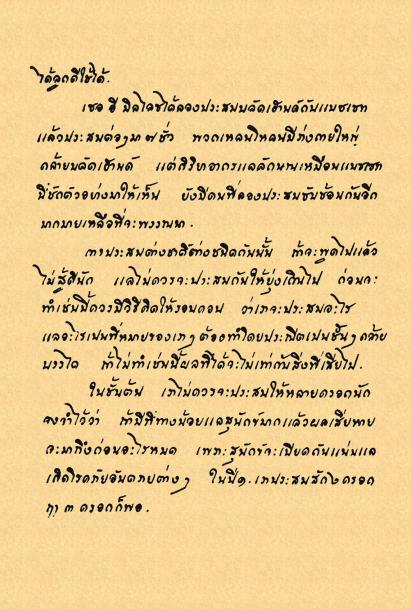 ได้ลูกดีใช้ได้.
เซอ อี มิลไลซ์ได้ลองประสมบลัดเฮ้าน์ดกับแบซเซท
แล้วประสมต่อๆมา ๗ ชั่ว พวกเหลนโหลนมีร่างกายใหญ่
คล้ายบลัดเฮ้าน์ด แต่กิริยาอาการแลลักษณะเหมือนแบซเซท
มีชัดตัวอย่างมาให้เห็น ยังมีคนที่ลองประสมซับซ้อนกันอีก
มากมายเหลือที่จะพรรณนา.
การประสมต่างชาติต่างชนิดกันนั้น ถ้าจะพูดไปแล้ว
ไม่สู้ดีนัก แลไม่ควรจะประสมกันให้ยุ่งเกินไป ก่อนจะ
ทำเช่นนี้ควรมีวิธีคิดให้รอบคอบ ว่าเราจะประสมอะไร
แลอะไรเปนที่หมายของเราๆ ต้องทำโดยประณีตเปนชั้นๆ คล้าย
บรรได ถ้าไม่ทำเช่นนี้ผลที่ได้จะไม่เท่ากับสิ่งที่เสียไป.
ในชั้นต้น เราไม่ควรจะประสมให้หลายครอกนัก
จงจำไว้ว่า ถ้ามีที่ทางน้อยแลสุนักข์มากแล้วผลเสียหาย
จะมาถึงก่อนอะไรหมด เพราะสุนักข์จะเบียดกันแน่นแล
เกิดโรคภัยอันตรายต่างๆ ในปี๑. เราประสมสัก ๒ ครอก
ฤๅ ๓ ครอกก็พอ.